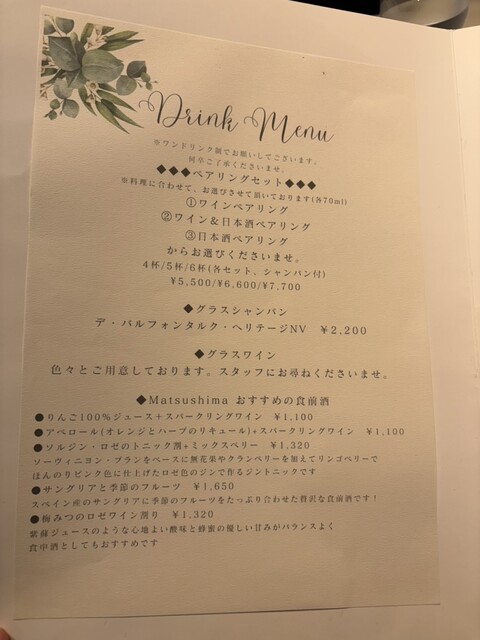 Drink Menu
※ワンドリンク制でお願いしてございます。
何卒ご了承くださいませ。
◆◆◆ペアリングセット◆◆◆
※料理に合わせて、お選びさせて頂いております(各70ml)
①ワインペアリング
②ワイン＆日本酒ペアリング
③日本酒ペアリング
からお選びくださいませ。
4杯/5杯/6杯(各セット、シャンパン付)
¥5,500/¥6,600/¥7,700
◆グラスシャンパン
デ・バルフォンタルク・ヘリテージNV ￥2,200
◆グラスワイン
色々とご用意しております。スタッフにお尋ねくださいませ。
◆Matsushima おすすめの食前酒
●りんご100％ジュース＋スパークリングワイン ￥1,100
●アペロール(オレンジとハーブのリキュール)+スパークリングワイン ￥1,100
●ソルジン・ロゼのトニック割+ミックスベリー ￥1,320
ソーヴィニヨン・ブランをベースに無花果やクランベリーを加えてリンゴベリーで
ほんのりピンク色に仕上げたロゼ色のジンで作るジントニックです
●サングリアと季節のフルーツ ￥1,650
スペイン産のサングリアに季節のフルーツをたっぷり合わせた贅沢な食前酒です！
●梅みつのロゼワイン割り ￥1,320
紫蘇ジュースのような心地よい酸味と蜂蜜の優しい甘みがバランスよく
食中酒としてもおすすめです